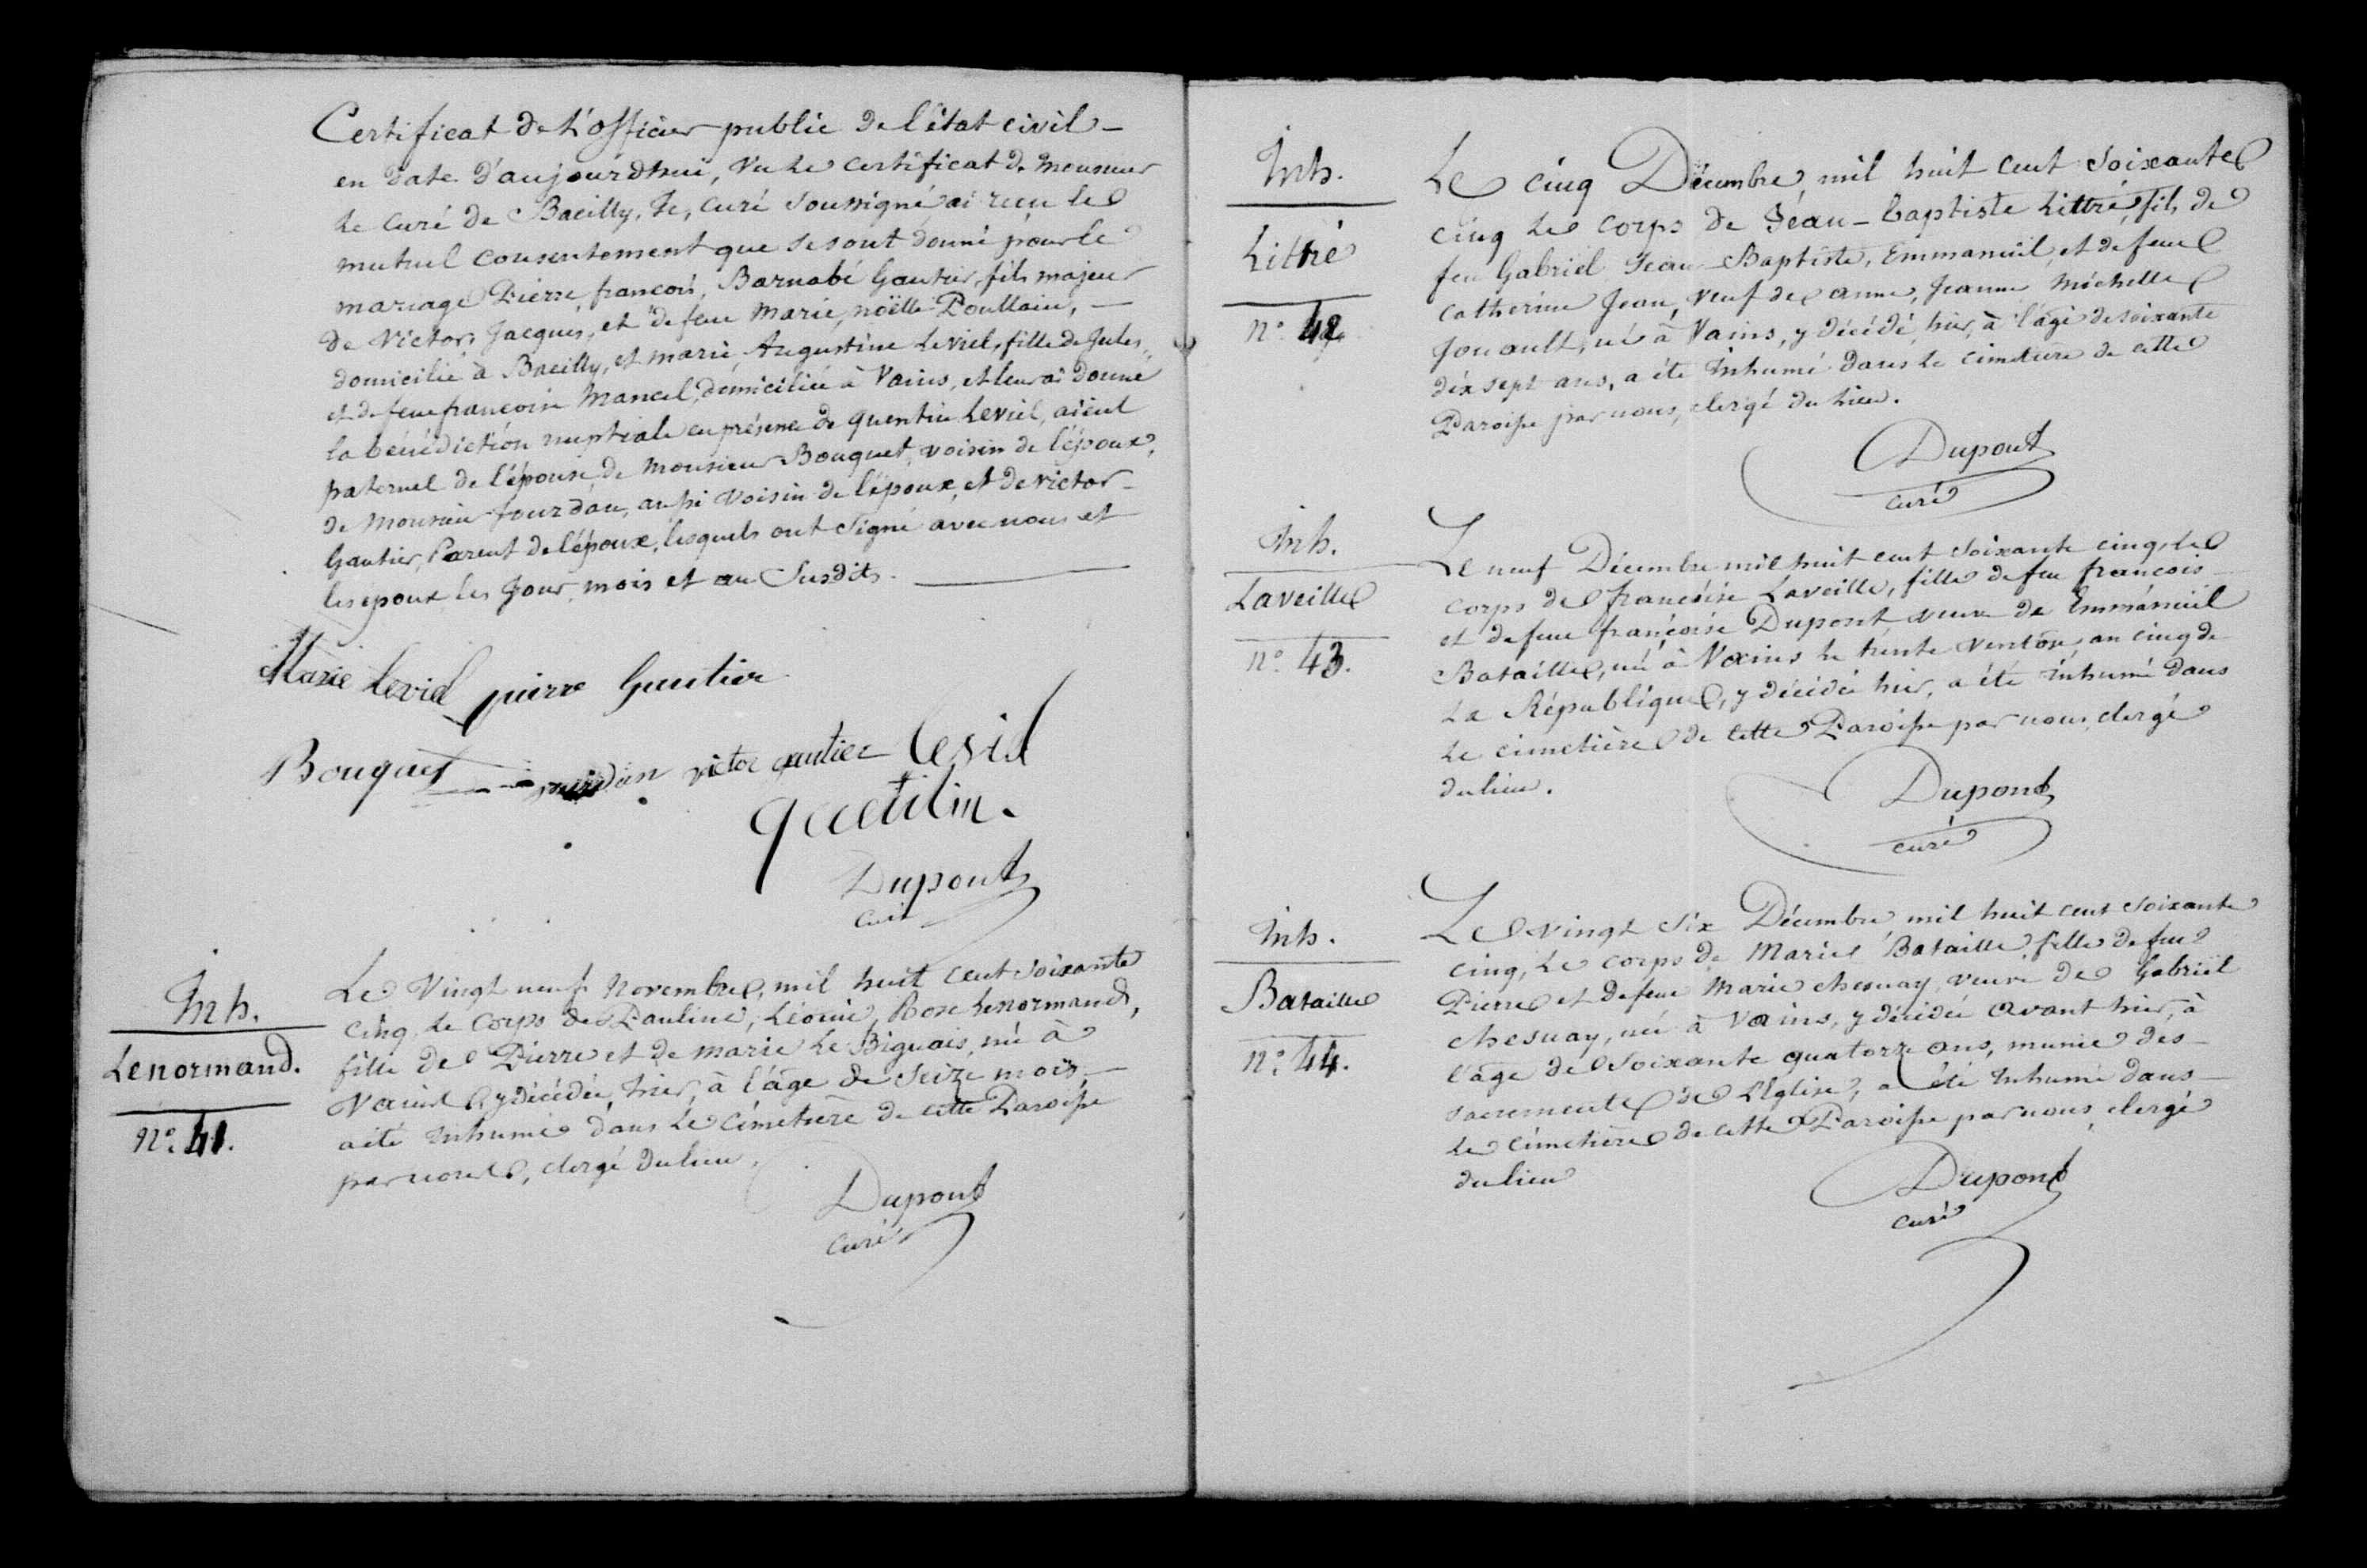 Certificat de L'officier public de l'état civil –
en date d'aujourdhui, vu Le certificat de Monsieur
Le curé de Bacilly, Je, curé soussigné ai reçu le
mutuel consentement que se sont donné pour le
mariage Pierre, françois, Barnabé Gautier, fils majeur
de Victor, Jacques, et de feue Marie, noëlle Poullain, —
domicilié à Bacilly, et marie Augustine Leviel, fille de Jules,
et de feue françoise Mancel, domiciliée à Vains, et leur ai donné
la bénédiction nuptiale en présence de quentin Leviel, aïeul
paternel de l'épouse, de Monsieur Bouquet, voisin de l'époux,
de Monsieur Jourdan, aussi voisin de l'époux, et de victor –
Gautier, Parent de l'époux, lesquels ont signé avec nous et
les epoux les jour, mois et an Susdits. —
Marie Leviel pierre Gautier
Bouquet jourdan victor gautier leviel
quentin.
Dupont
curé
Inh.
Lenormand.
N°. 41.
Le Vingt neuf Novembre, mil huit cent soixante
cinq, Le Corps de Pauline, Léonie, Rose Lenormand,
fille de Pierre et de marie Le Biguais, née à
Vains, y décédée, hier, à l'âge de Seize mois, —
a été Inhumée dans Le cimetière de cette Paroisse
par nous, clergé du lieu.
Dupont
curé
Inh.
Littré
N°. 42.
Le cinq Décembre, mil huit cent soixante
cinq Le corps de Jean-baptiste Littré, fils de
feu Gabriel Jean-Baptiste, Emmanuël, et de feue
Catherine Jean, Veuf de anne, Jeanne Michelle
Jouault, né à Vains, y décédé, hier, à l'âge de soixante
dix sept ans, a été Inhumé dans Le cimetière de cette
Paroisse par nous, clergé du Lieu.
Dupont
curé
Inh.
Laveille
N°. 43.
Le neuf Décembre mil huit cent soixante cinq, le
corps de françoise Laveille, fille de feu françois –
et de feue françoise Dupont veuve de Emmanuël
Bataille, née à Vains Le trente ventôse, an cinq de
La République, y décédée hier, a été inhumé dans
Le cimetière de cette Paroisse par nous, clergé
du lieu.
Dupont
curé
Inh.
Bataille
N°. 44.
Le Vingt Six Décembre, mil huit cent soixante
cinq, Le corps de Marie Bataille, fille de feu
Pierre et de feue Marie chesnay, veuve de Gabriël
chesnay, née à Vains, y décédée avant hier, à
l'âge de Soixante quatorze ans, munie des –
sacrements de L'Eglise, a été Inhumé dans –
Le cimetière de cette Paroisse par nous, clergé
du lieu
Dupont
curé